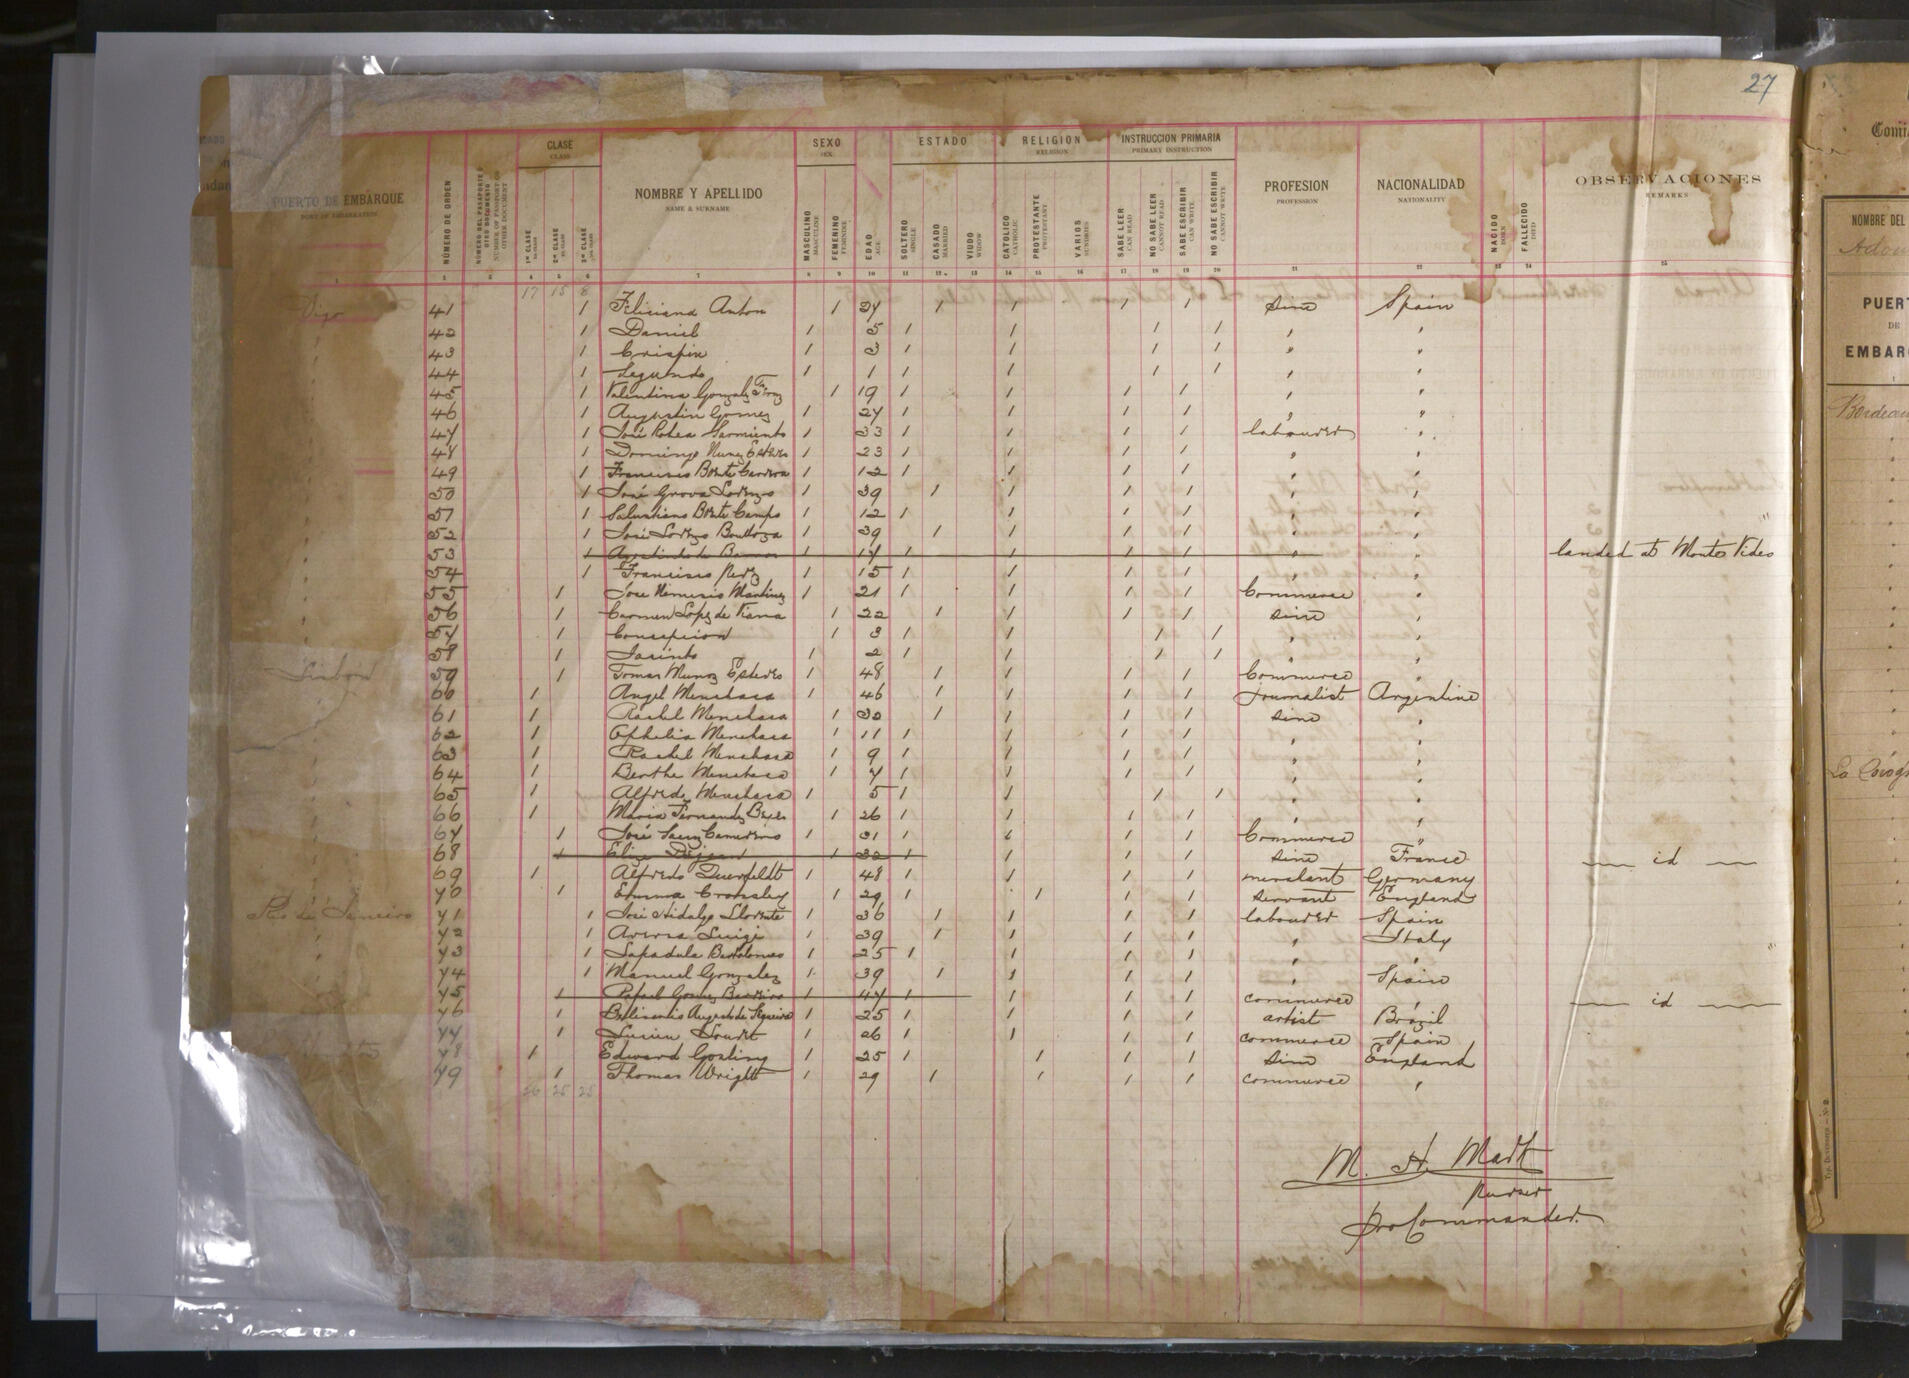 27
CLASE
CLASS
SEXO
SEX
ESTADO
RELIGION
RELIGION
INSTRUCCION PRIMARIA
PRIMARY INSTRUCTION
PUERTO DE EMBARQUE
PORT OF EMBARKATION
NÚMERO DE ORDEN
NÚMERO DEL PASAPORTE Ú OTRO DOCUMENTO
NUMBER OF PASSPORT OR OTHER DOCUMENT
1ra CLASE
2da CLASE
3ra CLASE
NOMBRE Y APELLIDO
NAME & SURNAME
MASCULINO
MASCULINE
FEMENINO
FEMININE
EDAD
AGE
SOLTERO
SINGLE
CASADO
MARRIED
VIUDO
WIDOW
CATOLICO
CATHOLIC
PROTESTANTE
PROTESTANT
VARIOS
SUNDRIES
SABE LEER
CAN READ
NO SABE LEER
CANNOT READ
SABE ESCRIBIR
CAN WRITE
NO SABE ESCRIBIR
CANNOT WRITE
PROFESION
PROFESSION
NACIONALIDAD
NATIONALITY
NACIDO
BORN
FALLECIDO
DIED
OBSERVACIONES
REMARKS
1 2 3 4 5 6 7 8 9 10 11 12 13 14 15 16 17 18 19 20 21 22 23 24 25
17 15 8
Vigo 41 1 Feliciana Anton 1 24 1 1 1 1 sine Spain
" 42 1 Daniel 1 5 1 1 1 1 " "
" 43 1 Crispin 1 3 1 1 1 1 " "
" 44 1 Segundo 1 1 1 1 1 1 " "
" 45 1 Valentina Gonzalez 1 19 1 1 1 1 " "
" 46 1 Augustin Gomez 1 24 1 1 1 1 " "
" 47 1 José Sarmiento 1 33 1 1 1 1 labourer "
" 48 1 Domingo Nunez Esteves 1 23 1 1 1 1 " "
" 49 1 Francisco 1 12 1 1 1 1 " "
" 50 1 José Grova Lorenzo 1 39 1 1 1 1 " "
" 51 1 Salustiano Campo 1 12 1 1 1 1 " "
" 52 1 José Lorenzo 1 39 1 1 1 1 " "
" 53 1 1 17 1 1 1 1 " " landed at Monte Video
" 54 1 Francisco Perez 1 15 1 1 1 1 " "
" 55 1 Jose Nemesio Martinez 1 21 1 1 1 1 Commerce "
" 56 1 Carmen Lopez de Viana 1 22 1 1 1 1 sine "
" 57 1 Concepcion 1 3 1 1 1 1 " "
" 58 1 Jacinto 1 2 1 1 1 1 " "
Lisbon 59 1 Tomas Munoz Esteves 1 48 1 1 1 1 Commerce "
" 60 1 Angel Menchaca 1 46 1 1 1 1 journalist Argentine
" 61 1 Rachel Menchaca 1 32 1 1 1 1 sine "
" 62 1 Ophelia Menchaca 1 11 1 1 1 1 " "
" 63 1 Rachel Menchaca 1 9 1 1 1 1 " "
" 64 1 Berthe Menchaca 1 7 1 1 1 1 " "
" 65 1 Alfredo Menchaca 1 5 1 1 1 1 " "
" 66 1 Maria Fernandez 1 26 1 1 1 1 " "
" 67 1 José Sanz Camereno 1 31 1 1 1 1 Commerce "
" 68 1 Elize Dejean 1 32 1 1 1 1 sine France id
" 69 1 Alfredo Querfeldt 1 48 1 1 1 1 merchant Germany
" 70 1 Emma Crossley 1 29 1 1 1 1 servant England
Rio de Janeiro 71 1 José Hidalgo Llorente 1 36 1 1 1 1 labourer Spain
" 72 1 Aversa Luigi 1 39 1 1 1 1 " Italy
" 73 1 Lapadula Bartolomeo 1 25 1 1 1 1 " "
" 74 1 Manuel Gonzalez 1 39 1 1 1 1 " Spain
" 75 1 Rafael Gomez Barreiro 1 47 1 1 1 1 commerce " id
" 76 1 Belisario August de Siqueira 1 25 1 1 1 1 artist Brazil
77 1 Lucien 1 26 1 1 1 1 commerce Spain
78 1 Edward Gosling 1 25 1 1 1 1 sine England
79 1 Thomas Wright 1 29 1 1 1 1 commerce "
26 25 28
M. H. Mark
Purser
pro Commander.
NOMBRE DEL
PUERT
DE
EMBARQ
1
Bordeau